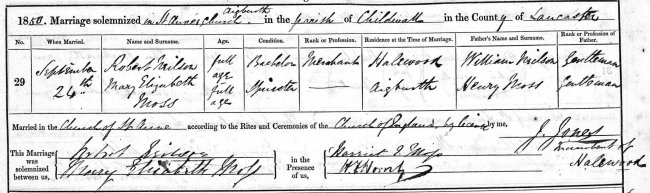 1850. Marriage solemnized in St Anne's Church Aigburth in the parish of Childwall in the County of Lancaster
No. When Married. Name and Surname. Age. Condition. Rank or Profession. Residence at the Time of Marriage. Father's Name and Surname. Rank or Profession of Father.
29 September 24th Robert Neilson full age Bachelor Merchant Halewood William Neilson Gentleman
Mary Elizabeth Moss full age Spinster — Aigburth Henry Moss Gentleman
Married in the Church of St Anne according to the Rites and Ceremonies of the Church of England by licence by me,
J. Jones
Incumbent of
Halewood
This Marriage was solemnized between us,
Robert Neilson
Mary Elizabeth Moss
in the Presence of us,
Harriet E Moss